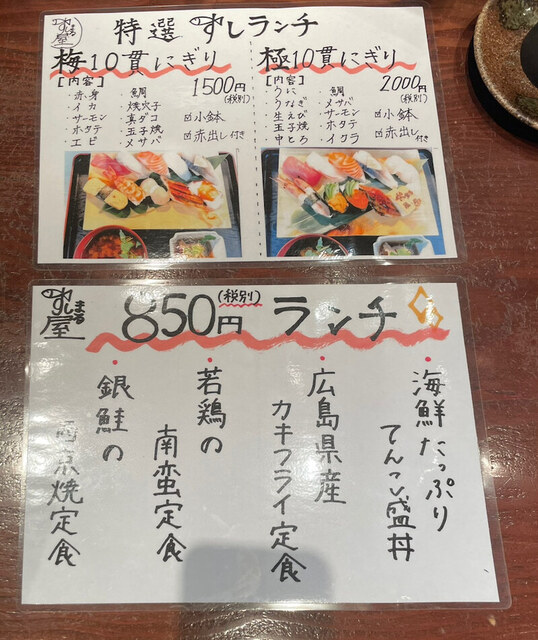 すし屋
特選 すしランチ
梅10貫にぎり
1500円
(税別)
[内容]
・赤身
・イカ
・サーモン
・ホタテ
・エビ
・鯛
・焼穴子
・真ダコ
・玉子焼
・メサバ
☑小鉢
☑赤出し付き
極10貫にぎり
2000円
(税別)
[内容]
・うに
・うなぎ
・生えび
・玉子焼
・中とろ
・鯛
・メサバ
・サーモン
・ホタテ
・イクラ
☑小鉢
☑赤出し付き
すし屋
まる
850円(税別) ランチ
・海鮮たっぷり
てんこ盛丼
・広島県産
カキフライ定食
・若鶏の
南蛮定食
・銀鮭の
西京焼定食